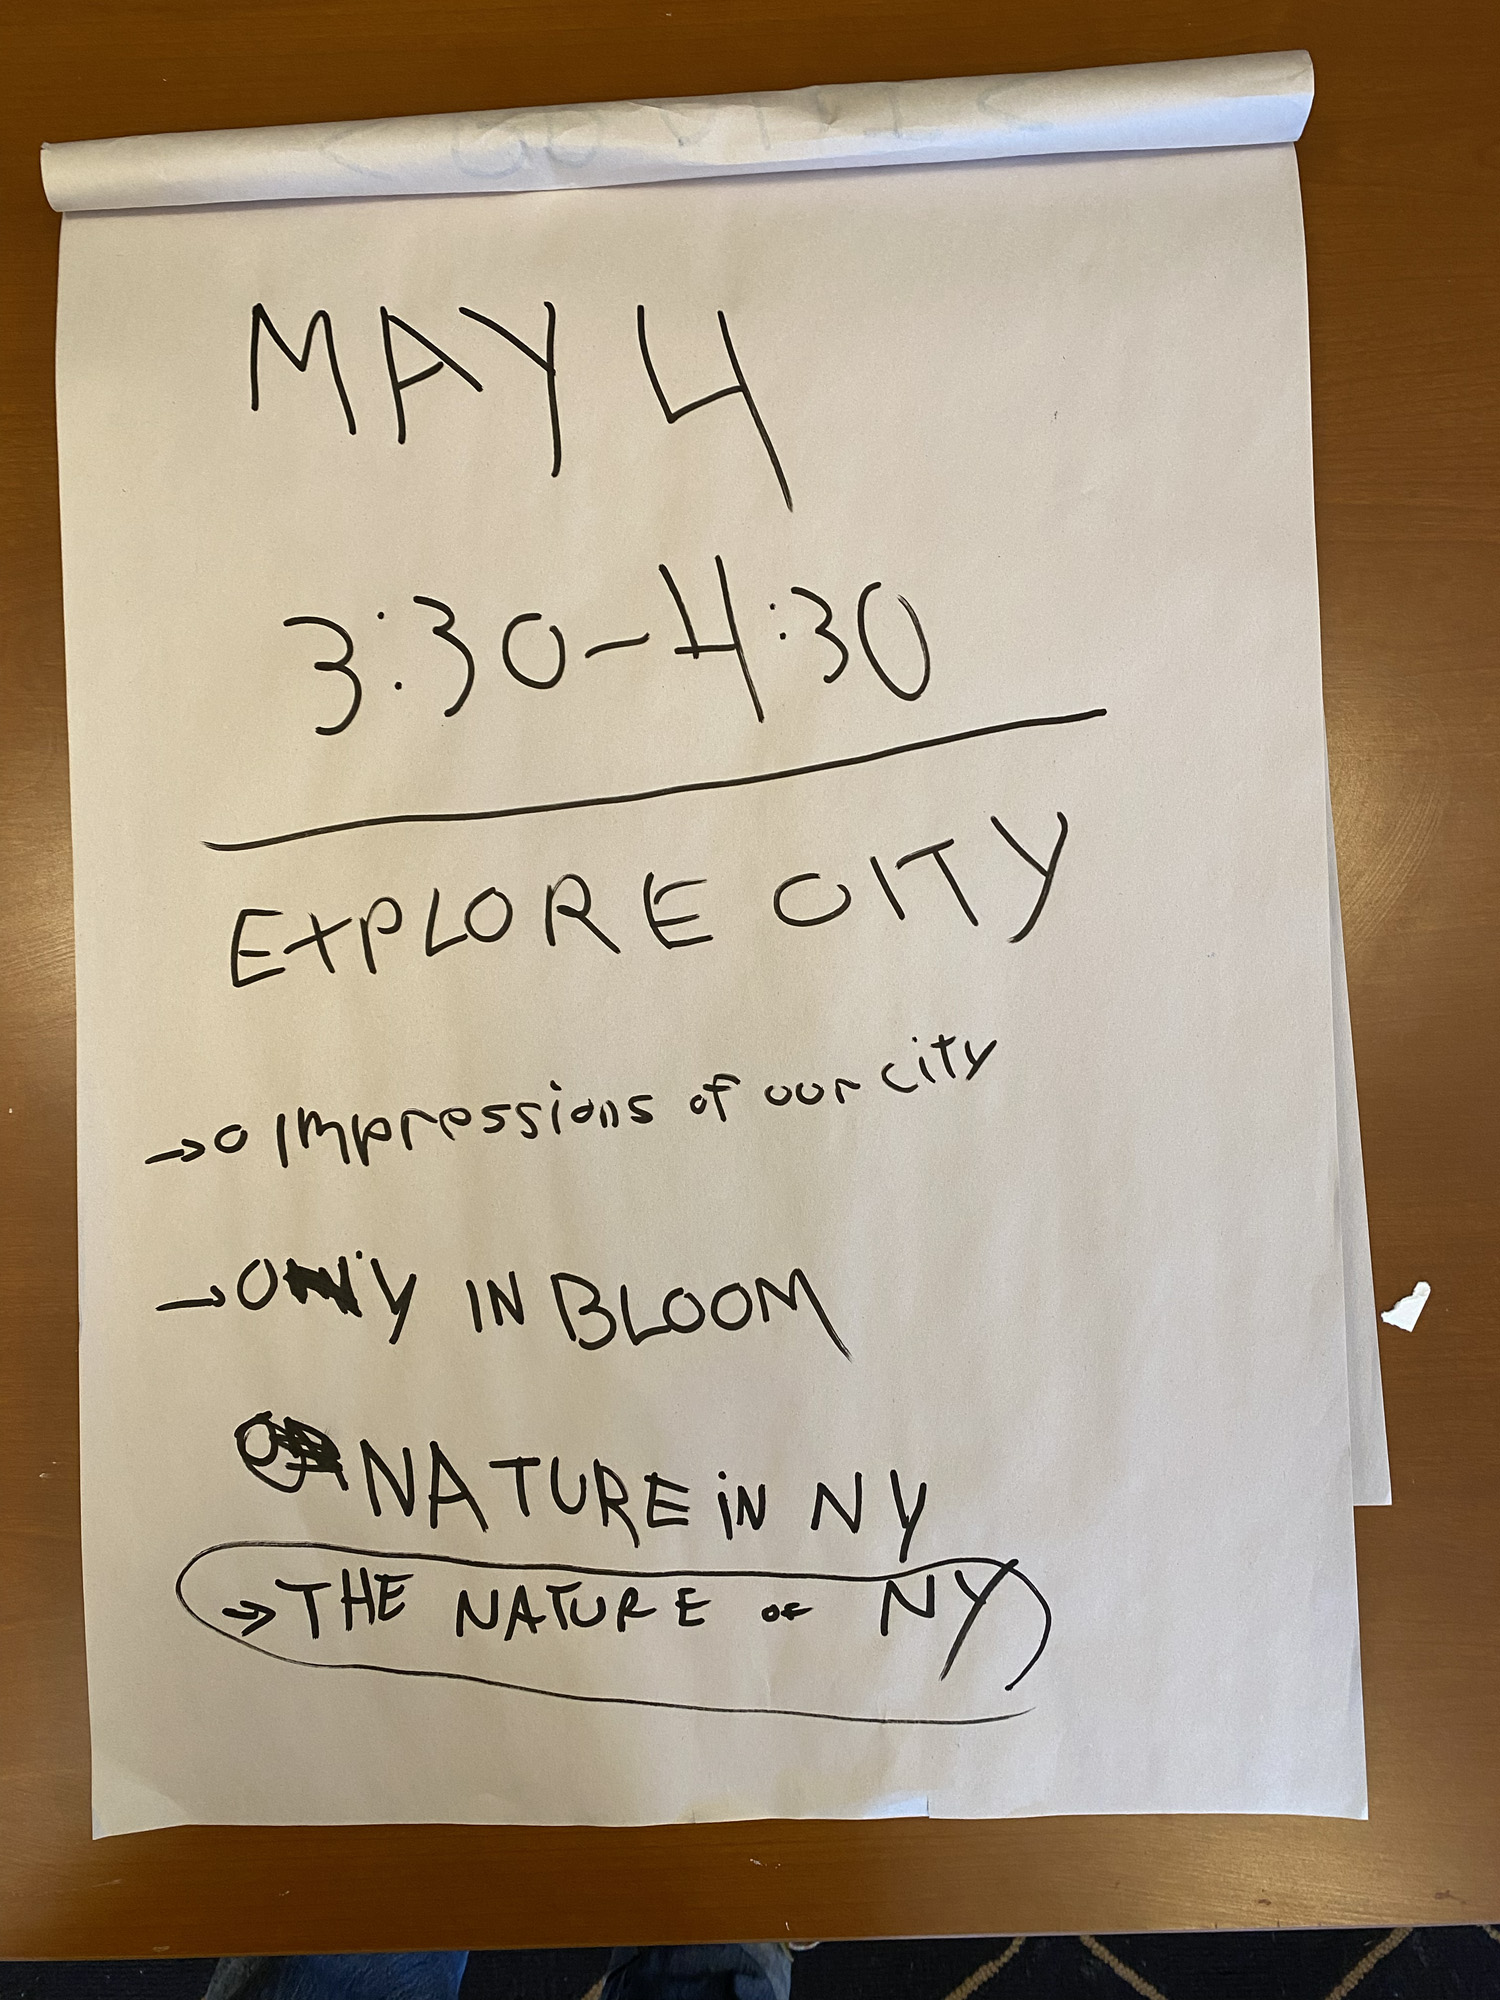 MAY 4
3:30-4:30
EXPLORE CITY
→o Impressions of our city
→o NY IN BLOOM
NATURE iN NY
→ THE NATURE OF NY